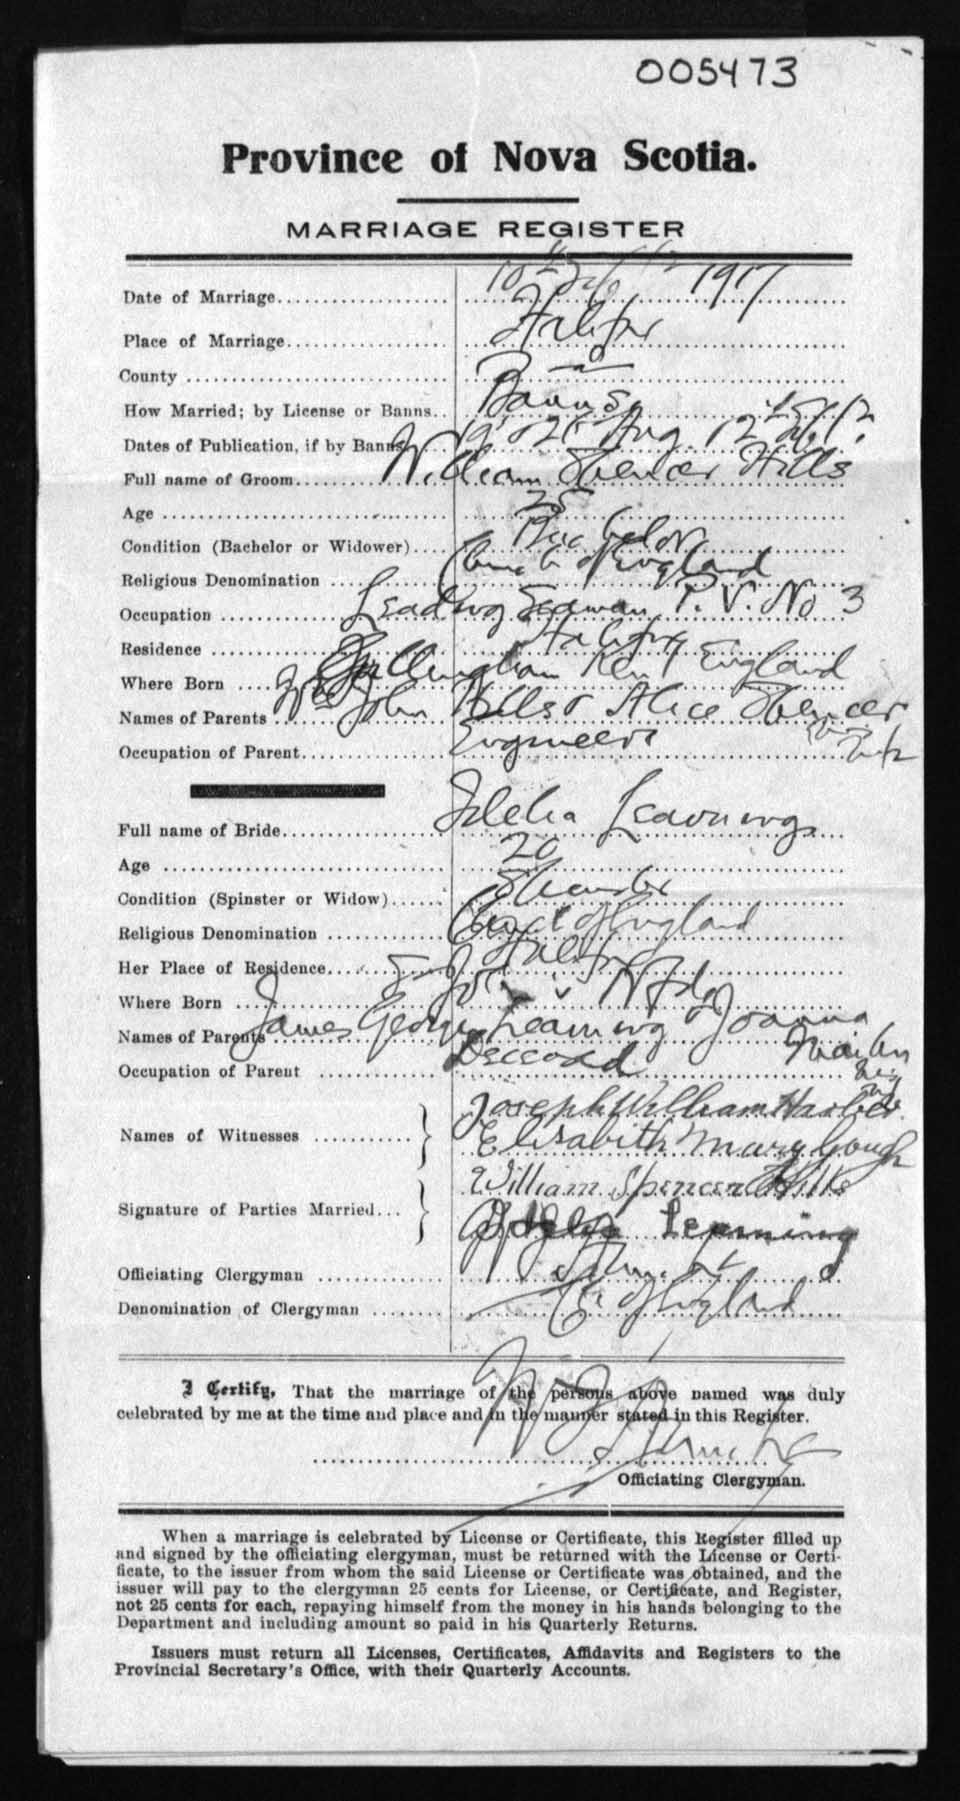 005473
Province of Nova Scotia.
MARRIAGE REGISTER
Date of Marriage 10th Sept 1917
Place of Marriage Halifax
County
How Married; by License or Banns Banns
Dates of Publication, if by Banns Aug. Sept
Full name of Groom William Spencer Hills
Age 25
Condition (Bachelor or Widower) Bachelor
Religious Denomination Church of England
Occupation Leading Seaman P.V. No 3
Residence Halifax
Where Born Gillingham Kent England
Names of Parents John Hills & Alice Spencer
Occupation of Parent Engineer
Full name of Bride Leamning
Age 20
Condition (Spinster or Widow) Spinster
Religious Denomination Church of England
Her Place of Residence Halifax
Where Born Nfld
Names of Parents James George Leaming & Joanna
Occupation of Parent Deceased
Names of Witnesses } Joseph William
Elisabith Mary Gough
Signature of Parties Married } William Spencer Hills
Leamning
Officiating Clergyman
Denomination of Clergyman C. of England
I Certify, That the marriage of the persons above named was duly
celebrated by me at the time and place and in the manner stated in this Register.
Officiating Clergyman.
When a marriage is celebrated by License or Certificate, this Register filled up
and signed by the officiating clergyman, must be returned with the License or Certi-
ficate, to the issuer from whom the said License or Certificate was obtained, and the
issuer will pay to the clergyman 25 cents for License, or Certificate, and Register,
not 25 cents for each, repaying himself from the money in his hands belonging to the
Department and including amount so paid in his Quarterly Returns.
Issuers must return all Licenses, Certificates, Affidavits and Registers to the
Provincial Secretary's Office, with their Quarterly Accounts.